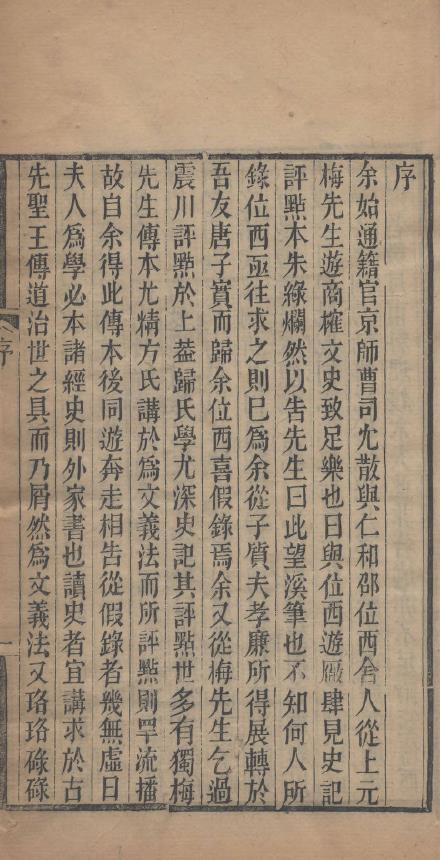 序
余始通籍官京師曹司尤散與仁和邵位西舍人從上元
梅先生遊商榷文史致足樂也日與位西遊廠肆見史記
評點本朱綠爛然以告先生曰此望溪筆也不知何人所
錄位西亟往求之則已為余從子質夫孝廉所得展轉於
吾友唐子實而歸余位西喜假錄焉余又從梅先生乞過
震川評點於上葢歸氏學尤深史記其評點世多有獨梅
先生傳本尤精方氏講於為文義法而所評點則罕流播
故自余得此傳本後同遊奔走相告從假錄者幾無虛日
夫人為學必本諸經史則外家書也讀史者宜講求於古
先聖王傳道治世之具而乃屑然為文義法又珞珞碌碌
序
一